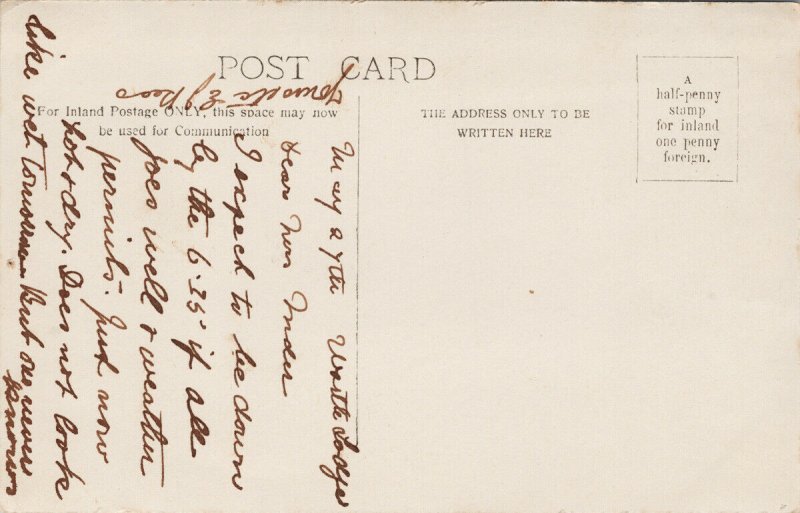 POST CARD
For Inland Postage ONLY, this space may now
be used for Communication
THE ADDRESS ONLY TO BE
WRITTEN HERE
A
half-penny
stamp
for inland
one penny
foreign.
May 27th Lodge
Dear Mrs
I expect to be down
by the 6.25 if all
goes well & weather
permits. Just now
hot & dry. Does not look
like wet tomorrow. But one never
knows
Yours etc